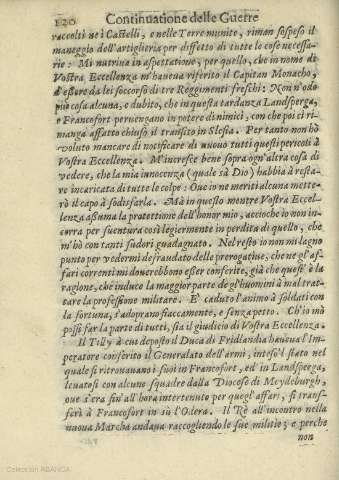 120 Continuatione delle Guerre
raccolti nei Castelli, e nelle Terre munite, riman sospeso il
maneggio dell'artiglieria per diffetto di tutte le cose necessa-
rie: Mi nutriua in aspettatione, per quello, che in nome di
Vostra Eccellenza m'haueua riferito il Capitan Monacho,
d'essere da lei soccorso di tre Reggimenti freschi: Non n'odo
più cosa alcuna, e dubito, che in questa tardanza Landsperga,
e Francofort peruengano in potere di nimici, con che poi ci ri-
manga affatto chiuso il transito in Slesia. Per tanto non hò
voluto mancare di notificare di nuouo tutti questi pericoli à
Vostra Eccellenza. M'incresce bene sopra ogn'altra cosa di
vedere, che la mia innocenza (quale sà Dio) habbia à resta-
re incaricata di tutte le colpe: Oue io ne meriti alcuna mette-
rò il capo à sodisfarla. Mà in questo mentre Vostra Eccel-
lenza assuma la protettione dell'honor mio, accioche io non in-
corra per suentura così legiermente in perdita di quello, che
m'hò con tanti sudori guadagnato. Nel resto io non mi lagno
punto per vedermi defraudato delle prerogatiue, che ne gl'af-
fari correnti mi douerebbono esser conferite, già che quest'è la
ragione, che induce la maggior parte de gl'huomini à mal trat-
tare la professione militare. E' caduto l'animo à soldati con
la fortuna, s'adoprano fiaccamente, e senza petto. Ch'io mò
possi far la parte di tutti, sia il giudicio di Vostra Eccellenza.
Il Tilly à cui deposto il Duca di Fridlandia haueua l'Im-
peratore conferito il Generalato dell'armi, inteso'l stato nel
quale si ritrouauano i suoi in Francofort, ed'in Landsperga,
leuatosi con alcune squadre dalla Diocese di Meydeburgh,
oue s'era fin'all'hora intertenuto per quegl'affari, si trans-
ferì à Francofort in sù l'Odera. Il Rè all'incontro nella
nuoua Marcha andaua raccogliendo le sue militie; e perche
non
Colección ABANCA